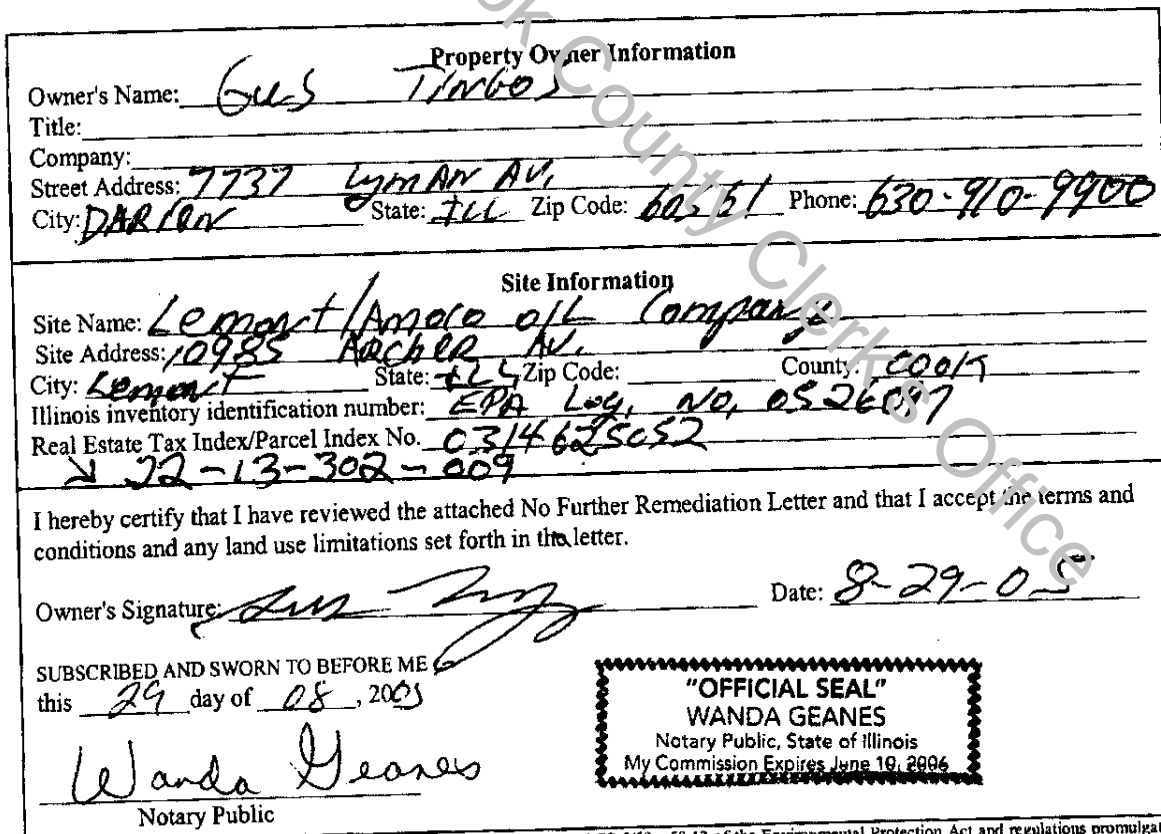 Property Owner Information
Owner's Name: Gus Tingos
Title:
Company:
Street Address: 7737 Lyman AV,
City: DARIEN State: ILL Zip Code: 60561 Phone: 630-910-9900
Site Information
Site Name: Lemont/Amoco oIL Company
Site Address: 10985 Archer AV.
City: Lemont State: ILL Zip Code: County: COOK
Illinois inventory identification number: EPA Log, NO, 0526097
Real Estate Tax Index/Parcel Index No. 0314625052
22-13-302-009
I hereby certify that I have reviewed the attached No Further Remediation Letter and that I accept the terms and
conditions and any land use limitations set forth in the letter.
Owner's Signature: Date: 8-29-05
SUBSCRIBED AND SWORN TO BEFORE ME
this 29 day of 08, 2005
"OFFICIAL SEAL"
WANDA GEANES
Notary Public, State of Illinois
My Commission Expires June 10, 2006
Wanda Geanes
Notary Public
of the Environmental Protection Act and regulations promulgat
County Clerk's Office